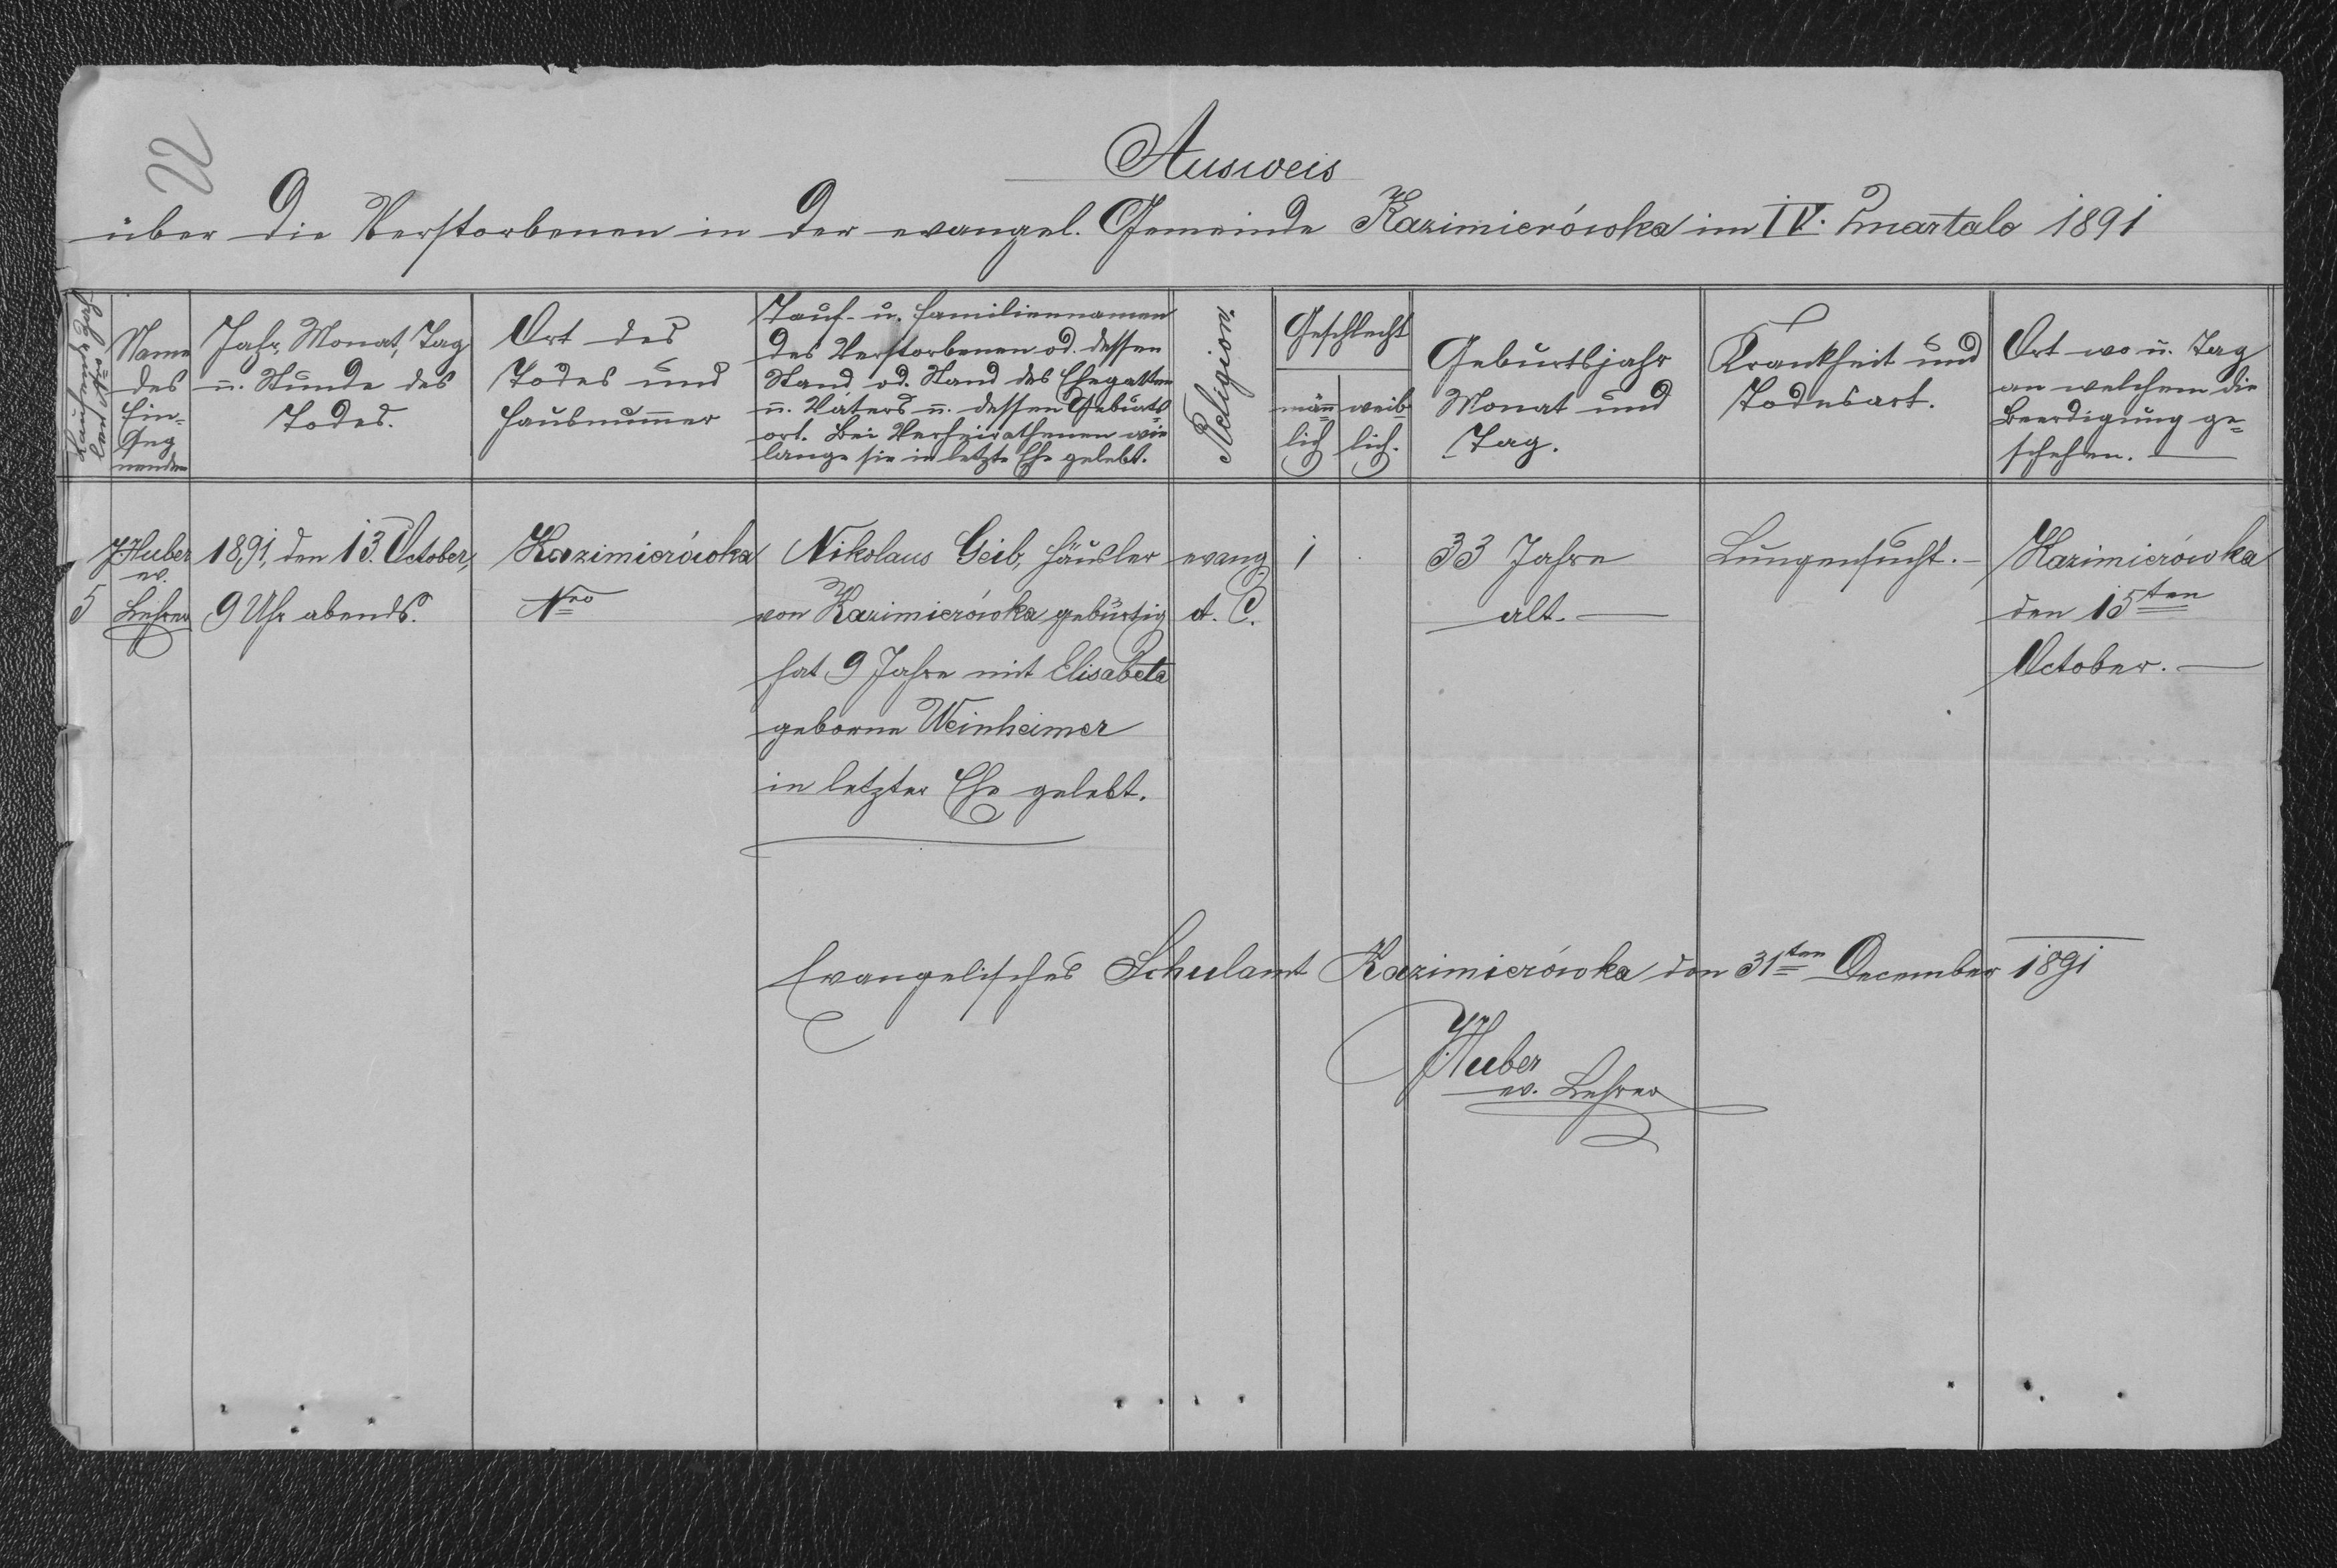 22
Ausweis
über die Verstorbenen in der evangel. Gemeinde Kazimierówka im IV. Quartale 1891
Name
des
Ein=
seg
nenden
Jahr, Monat, Tag
u. Stunde des
Todes.
Ort des
Todes und
Hausnummer
Tauf- u. Familiennamen
des Verstorbenen od. dessen
Stand od. Stand des Ehegatten
u. Vaters u. dessen Geburts
ort. Bei Verheirathenen wie
lange sie in letzte Ehe gelebt.
Religion.
Geschlecht
männ=
lich
weib
lich.
Geburtsjahr
Monat und
Tag.
Krankheit und
Todesart.
Ort wo u. Tag
an welchem die
Beerdigung ge=
schehen.
5
J. Huber
ev.
Lehrer
1891, den 13. October,
9 Uhr abends.
Kazimierówka
Nro
Nikolaus Geib, Häusler
von Kazimierówka gebürtig
hat 9 Jahre mit Elisabeta
geborne Weinheimer
in letzter Ehe gelebt.
evang.
A. C.
1
33 Jahre
alt.
Lungensucht.
Kazimierówka
den 15ten
October.
Evangelisches Schulamt Kazimierówka den 31ten December 1891
J. Huber
ev. Lehrer